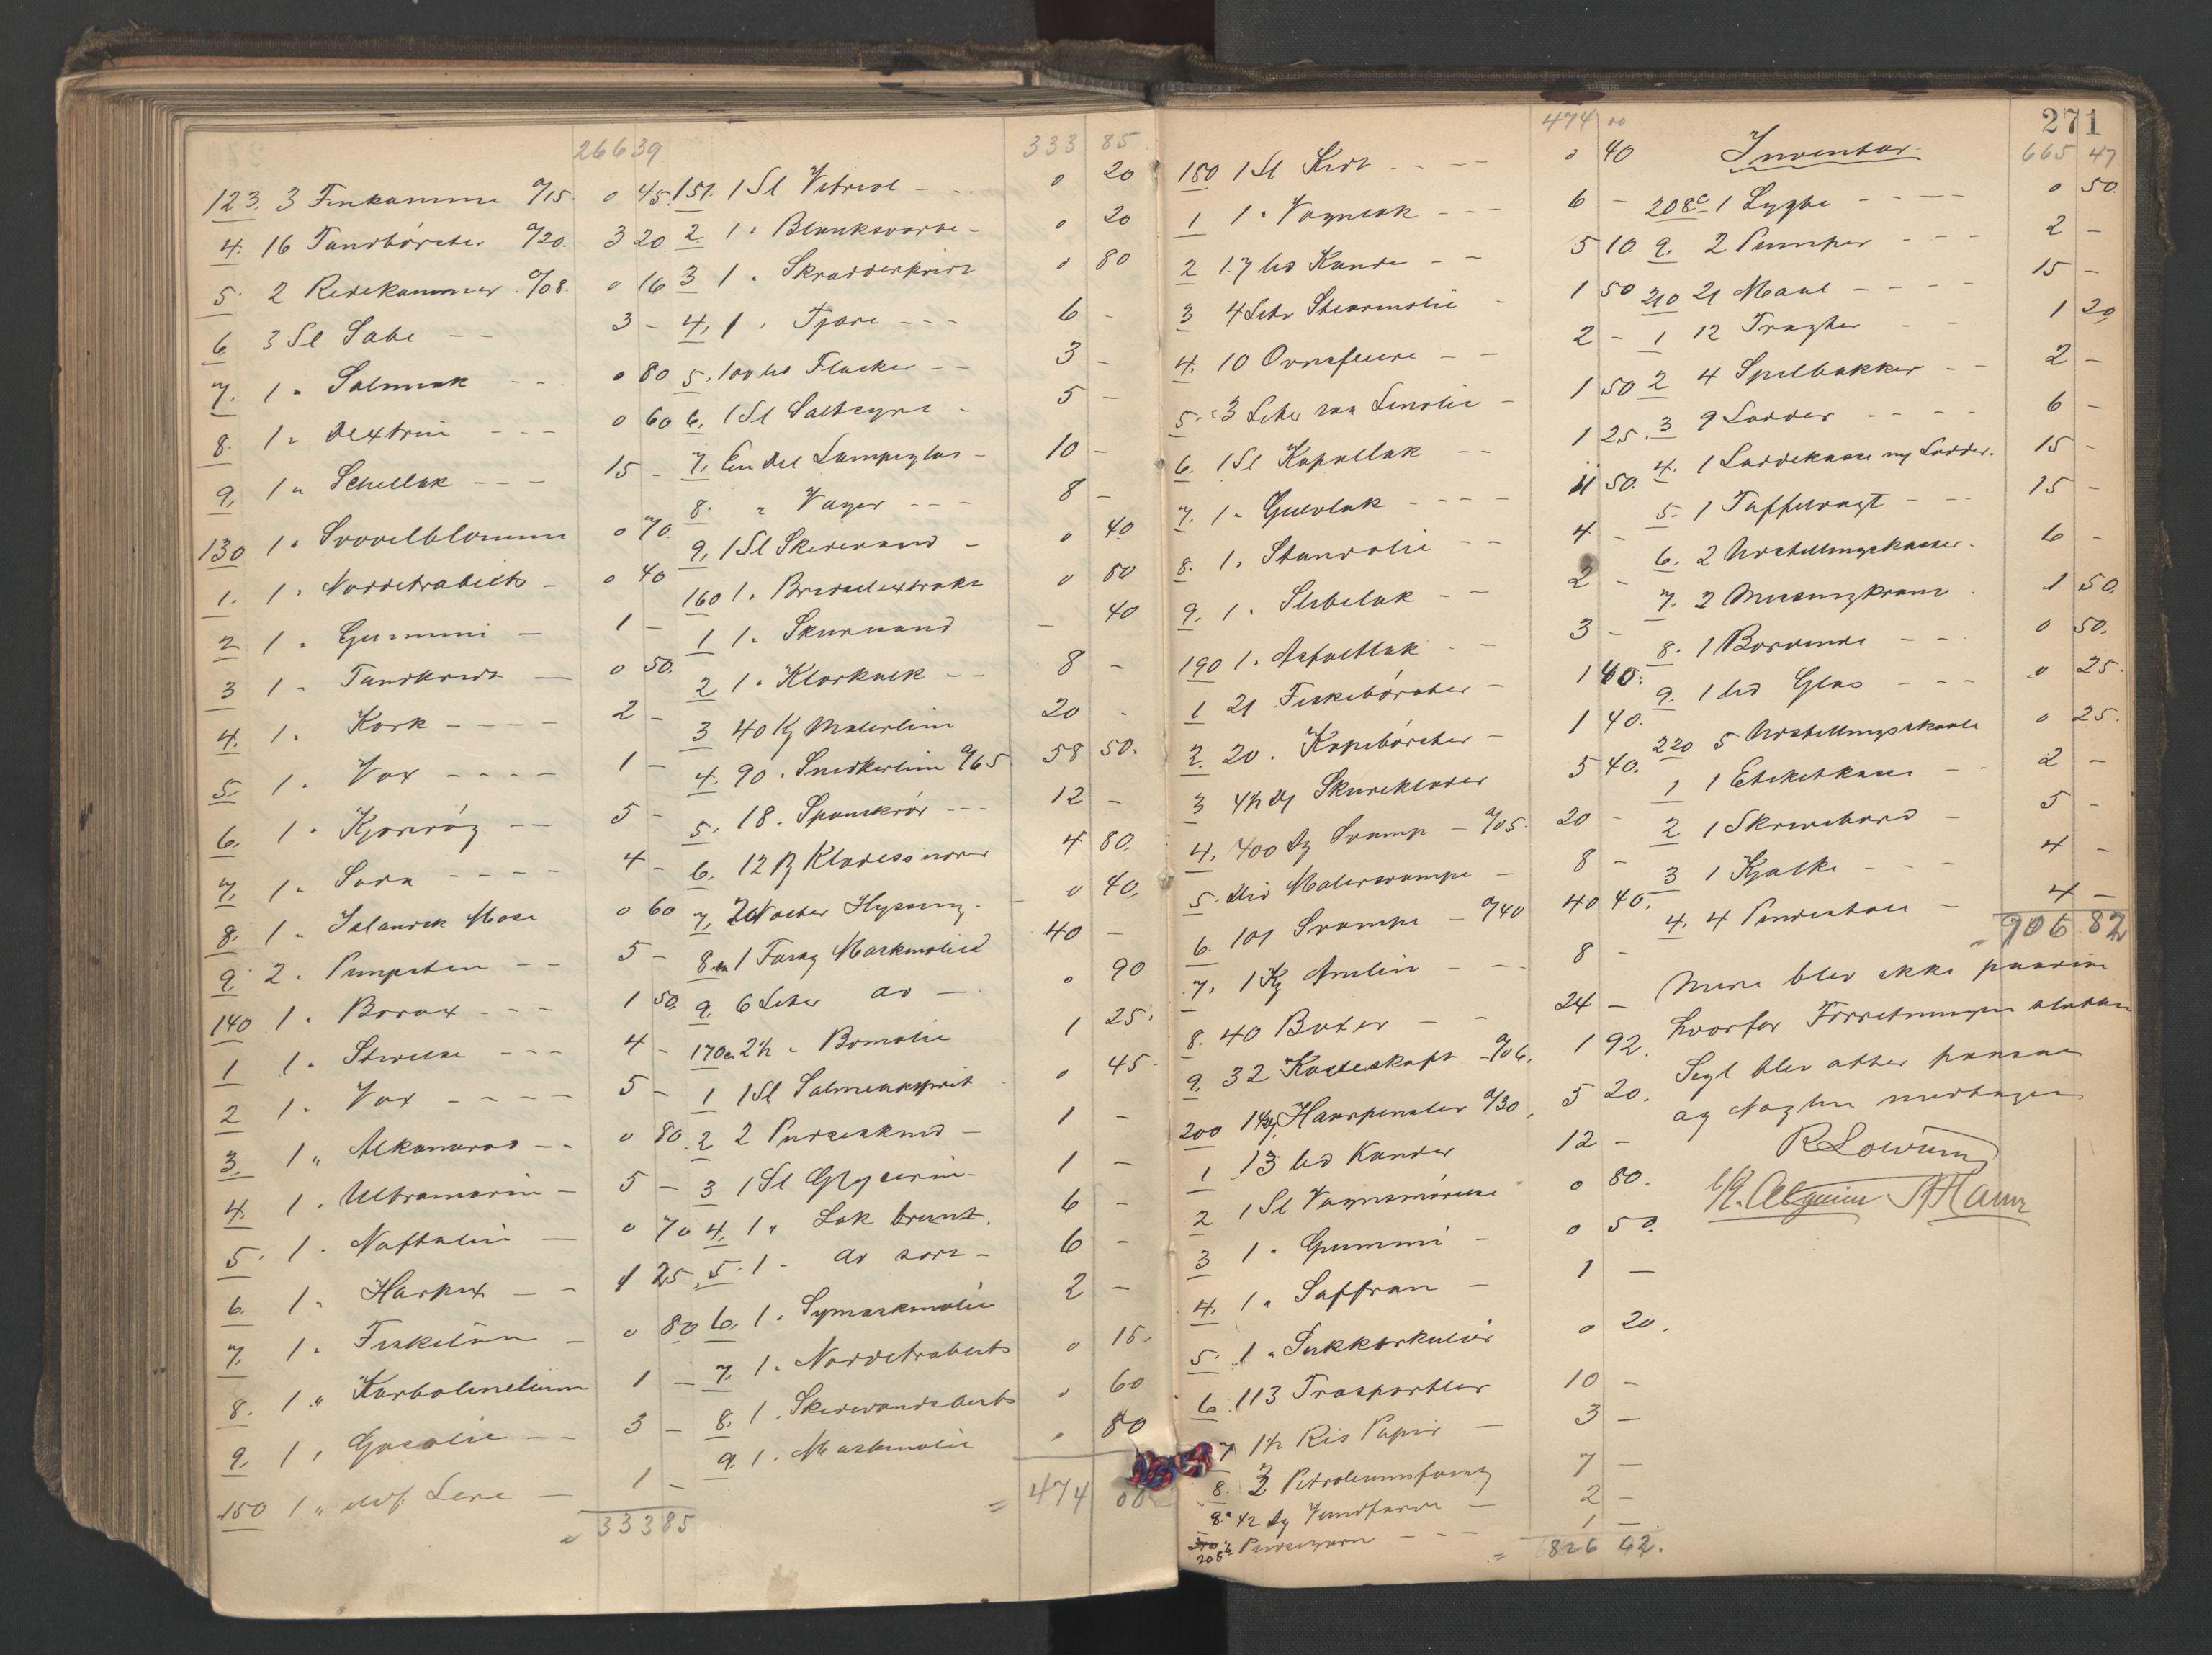 26639
123. 3 Finkamme a/15. 0 45.
4. 16 Tandbørster a/20. 3 20
5. 2 Redekammer a/08. 0 16
6 3 Sl Sæbe - - 3 -
7. 1 " Salmiak - - 0 80
8. 1 " Dextrin - - - 0 60
9. 1 " Schellak - - - 15 -
130 1 " Svovelblomme 0 70.
1. 1 " - 0 40
2 1 " Gummi - 1 -
3 1 " Tandkridt - 0 50.
4. 1 " Kork - - - - 2 -
5. 1 " Vox - - - - 1 -
6. 1 " Kjønrøg - - 5 -
7. 1 " Soda - - - - 4 -
8. 1 " Islandsk Mose 0 60
9. 2 " Pimpsten - - 5 -
140 1 " Borax - - - 1 50.
1 1 " Stivelse - - - 4 -
2 1 " Vox - - - - 5 -
3. 1 " Alkanarod - - 0 80.
4. 1 " Ultramarin - 5 -
5. 1 " Naftalin - 0 70
6. 1 " Harpix - - 1 25.
7. 1 " Fiskelim - 0 80
8. 1 " Karbolineum 1 -
9. 1 " Gasolie - - 3 -
150 1 " Lere - 1 -
= 33385
333 85
151. 1 Sl Vitriol - - 0 20
2 1 " Blanksværte - 0 20
3 1 " Skrædderkridt 0 80
4. 1 " Tjære - - - 6 -
5. 100 Flasker - - 3 -
6. 1 Sl Saltsyre - 5 -
7. En Del Lampeglas - 10 -
8. " Vaser - - - 8 -
9. 1 Sl Skedevand - 0 40
160 1 " 0 80
1 1 " Skurvand - 40
2 1 " Klorkalk - - 8 -
3 40 Kg Malerlim 20 -
4. 90 " Snedkerlim a/65. 58 50.
5. 18 " Spanskrør - - - 12 -
6. 12 Klædessnorer 4 80.
7. - 0 40.
8. 1 Maskinolie 40 -
9. 6 Liter do - 0 90
170 2½ " Bomolie 1 25.
1 1 Sl Salmiakspirit 0 45.
2 2 Pudseskind - 1 -
3 1 Sl Glycerin - 1 -
4. 1 " Lak brunt. 6 -
5. 1 " do sort - 6 -
6. 1 " Symaskinolie 2 -
7. 1 " 0 15.
8. 1 " 0 60
9. 1 " Maskinolie 0 80
= 474 00
474 00
180 1 Sl Kit - - - 0 40
1 1 " Vognlak - - - 6 -
2 17 Kande - - 5 10.
3 4 Liter Stearinolie - 1 50
4. 10 - - 2 -
5. 3 Liter raa Linolie - 1 50
6. 1 Sl Kopallak - - 1 25.
7. 1 " Gulvlak - - - - 4 50.
8. 1 " Standolie - - 4 -
9. 1 " Slibelak - - 2 -
190 1 " Asfaltlak - - 3 -
1 21 Fiskebørster - 1 40.
2. 20 " Kopibørster - 1 40.
3 4½ Skureklude 5 40.
4. 400 Svamp - a/05. 20 -
5. Div Malersvampe - 8 -
6. 101 Svampe - a/40 40 40.
7. 1 Kg Anilin - - - 8 -
8. 40 Bøter - - 24 -
9. 32 Kosteskaft - a/06. 1 92.
200 Haarpensler a/30. 5 20.
1 13 Kander 12 -
2 1 Sl Vognsmørelse 0 80.
3 1 " Gummi - 0 50.
4. 1 " Saffran - 1 -
5. 1 " Sukkerkulør 0 20.
6 113 10 -
7 1½ Ris Papir - 3 -
8. 2 Petroleumsfarvg 7 -
8.a ½ Vandfarve - 2 -
208b Pudsegarn - - - 1 -
271
Inventar.
665 47
208c 1 Lygte - - - - 0 50.
9. 2 Pumper - - - 2 -
210 21 Maal - - - - 15 -
1 12 Tragter - - 1 20,
2 4 Spilbakker - - 2 -
3 9 Skuffer - - - - 6 -
4. 1 15 -
5. 1 Taffelvægt - - - 15 -
6. 2 Udstillingskasser. 6 -
7. 2 Messingkrane. 1 50.
8. 1 - - 0 50.
9. 1 Glas - - - 0 25.
220 5 Udstillingsskaale 0 25.
1 1 Etiketkasse - - 2 -
2 1 Skrivebord - 5 -
3 1 Kjælke - - - 4 -
4. 4 - 4 -
= 706 82
Mere blev ikke paavist
hvorfor Forretningen sluttes
Segl blev atter paasat
og Nøglen modtagen